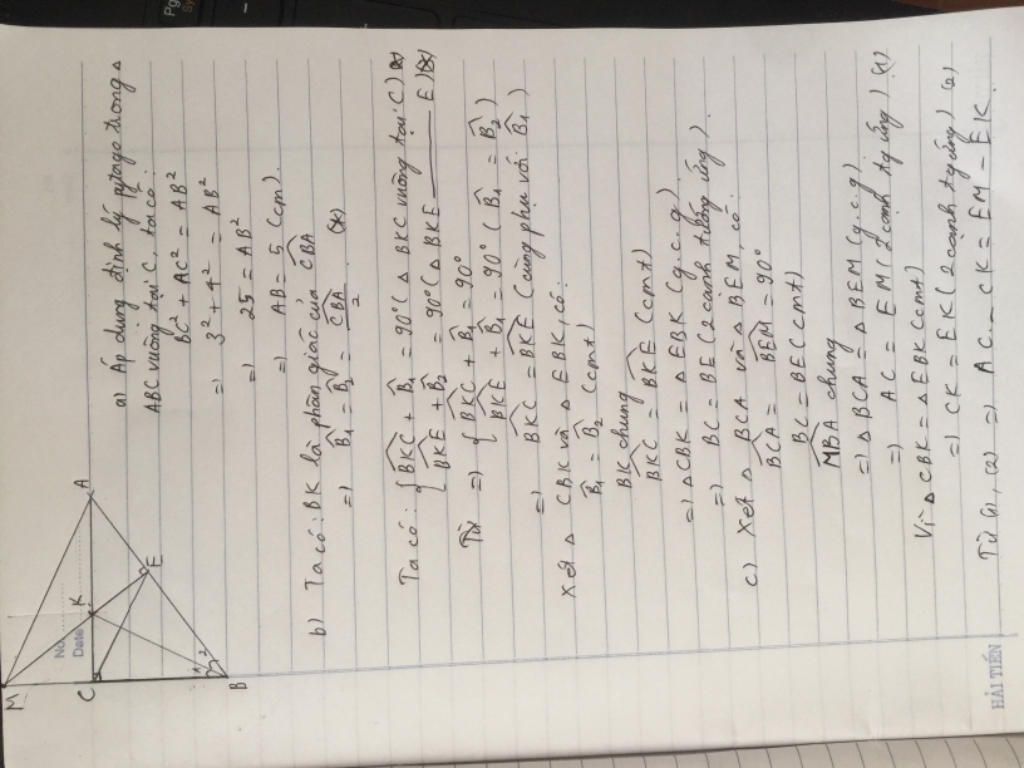 Pg
No
Date
M
A
K
C
E
1
2
B
a) Áp dụng định lý pytago trong Δ
ABC vuông tại C, ta có:
BC² + AC² = AB²
=) 3² + 4² = AB²
=) 25 = AB²
=) AB = 5 (cm).
b) Ta có: BK là phân giác của CBA
=) B₁ = B₂ = CBA/2 (*)
Ta có: { BKC + B₁ = 90° (Δ BKC vuông tại C)
BKE + B₂ = 90° (Δ BKE ——— E)
Từ =) { BKC + B₁ = 90°
BKE + B₁ = 90° (B₁ = B₂)
=) BKC = BKE (cùng phụ với B₁)
Xét Δ CBK và Δ EBK, có:
B₁ = B₂ (cmt)
BK chung
BKC = BKE (cmt)
=) Δ CBK = Δ EBK (g.c.g)
=) BC = BE (2 cạnh tương ứng).
c) Xét Δ BCA và Δ BEM, có:
BCA = BEM = 90°
BC = BE (cmt)
MBA chung
=) Δ BCA = Δ BEM (g.c.g)
=) AC = EM (2 cạnh tg ứng) (1)
Vì Δ CBK = Δ EBK (cmt)
=) CK = EK (2 cạnh tg ứng) (2)
Từ (1), (2) =) AC - CK = EM - EK
HẢI TIẾN